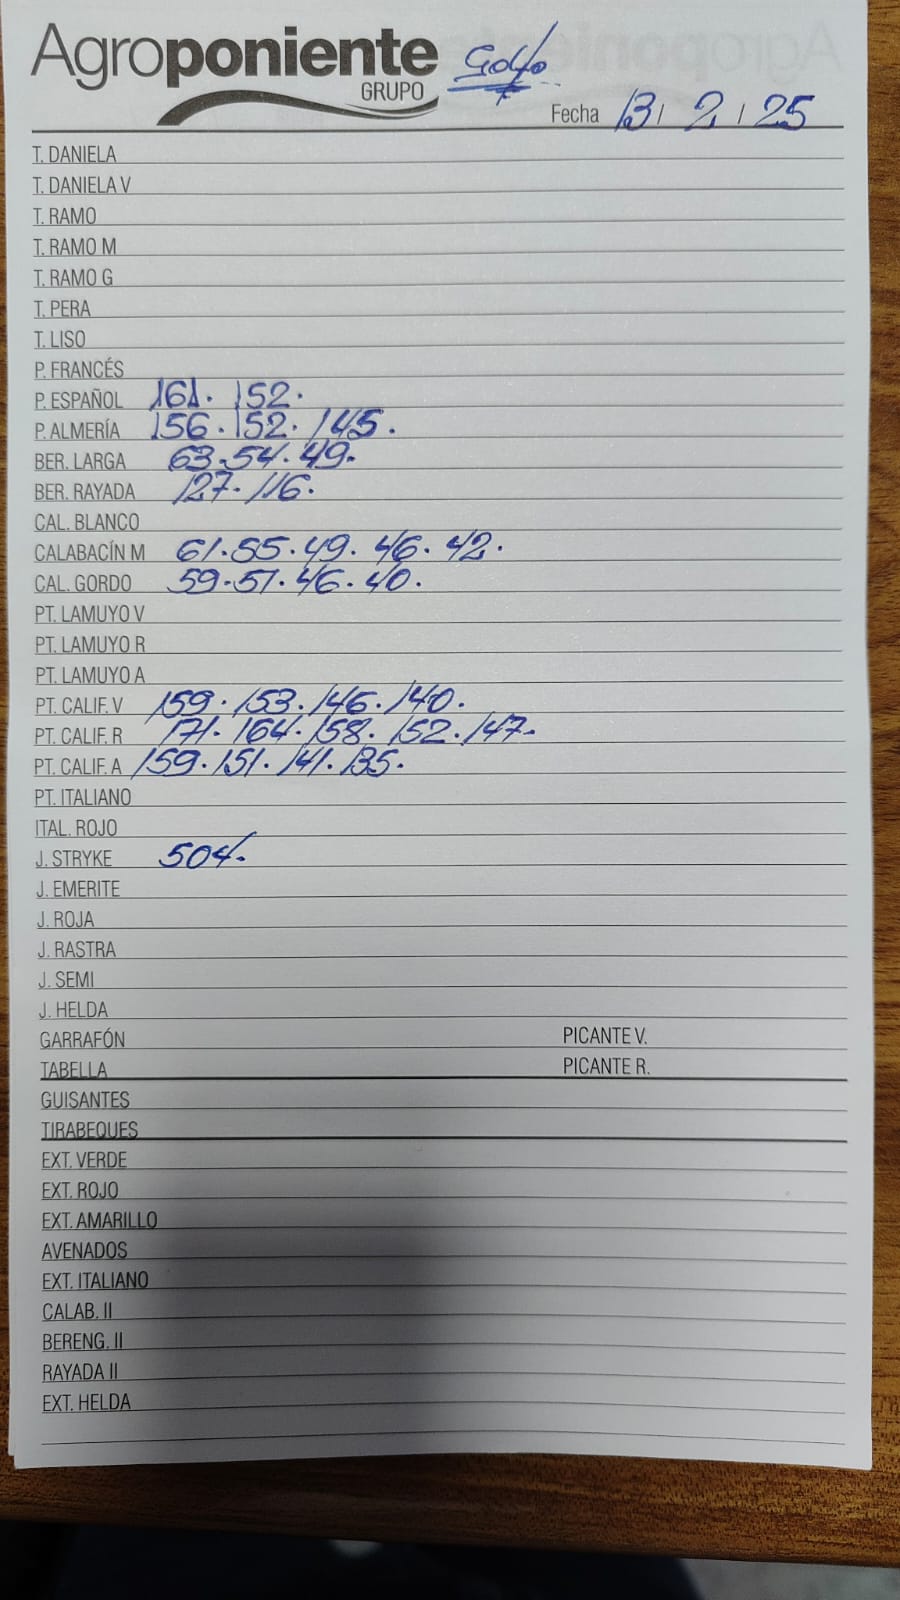 Agroponiente
GRUPO
Golfo
Fecha 13 / 2 / 25
T. DANIELA
T. DANIELA V
T. RAMO
T. RAMO M
T. RAMO G
T. PERA
T. LISO
P. FRANCÉS
P. ESPAÑOL 161. 152.
P. ALMERÍA 156. 152. 145.
BER. LARGA 63. 54. 49.
BER. RAYADA 127. 116.
CAL. BLANCO
CALABACÍN M 61. 55. 49. 46. 42.
CAL. GORDO 59. 51. 46. 40.
PT. LAMUYO V
PT. LAMUYO R
PT. LAMUYO A
PT. CALIF. V 159. 153. 146. 140.
PT. CALIF. R 171. 164. 158. 152. 147.
PT. CALIF. A 159. 151. 141. 135.
PT. ITALIANO
ITAL. ROJO
J. STRYKE 504.
J. EMERITE
J. ROJA
J. RASTRA
J. SEMI
J. HELDA
GARRAFÓN PICANTE V.
TABELLA PICANTE R.
GUISANTES
TIRABEQUES
EXT. VERDE
EXT. ROJO
EXT. AMARILLO
AVENADOS
EXT. ITALIANO
CALAB. II
BERENG. II
RAYADA II
EXT. HELDA